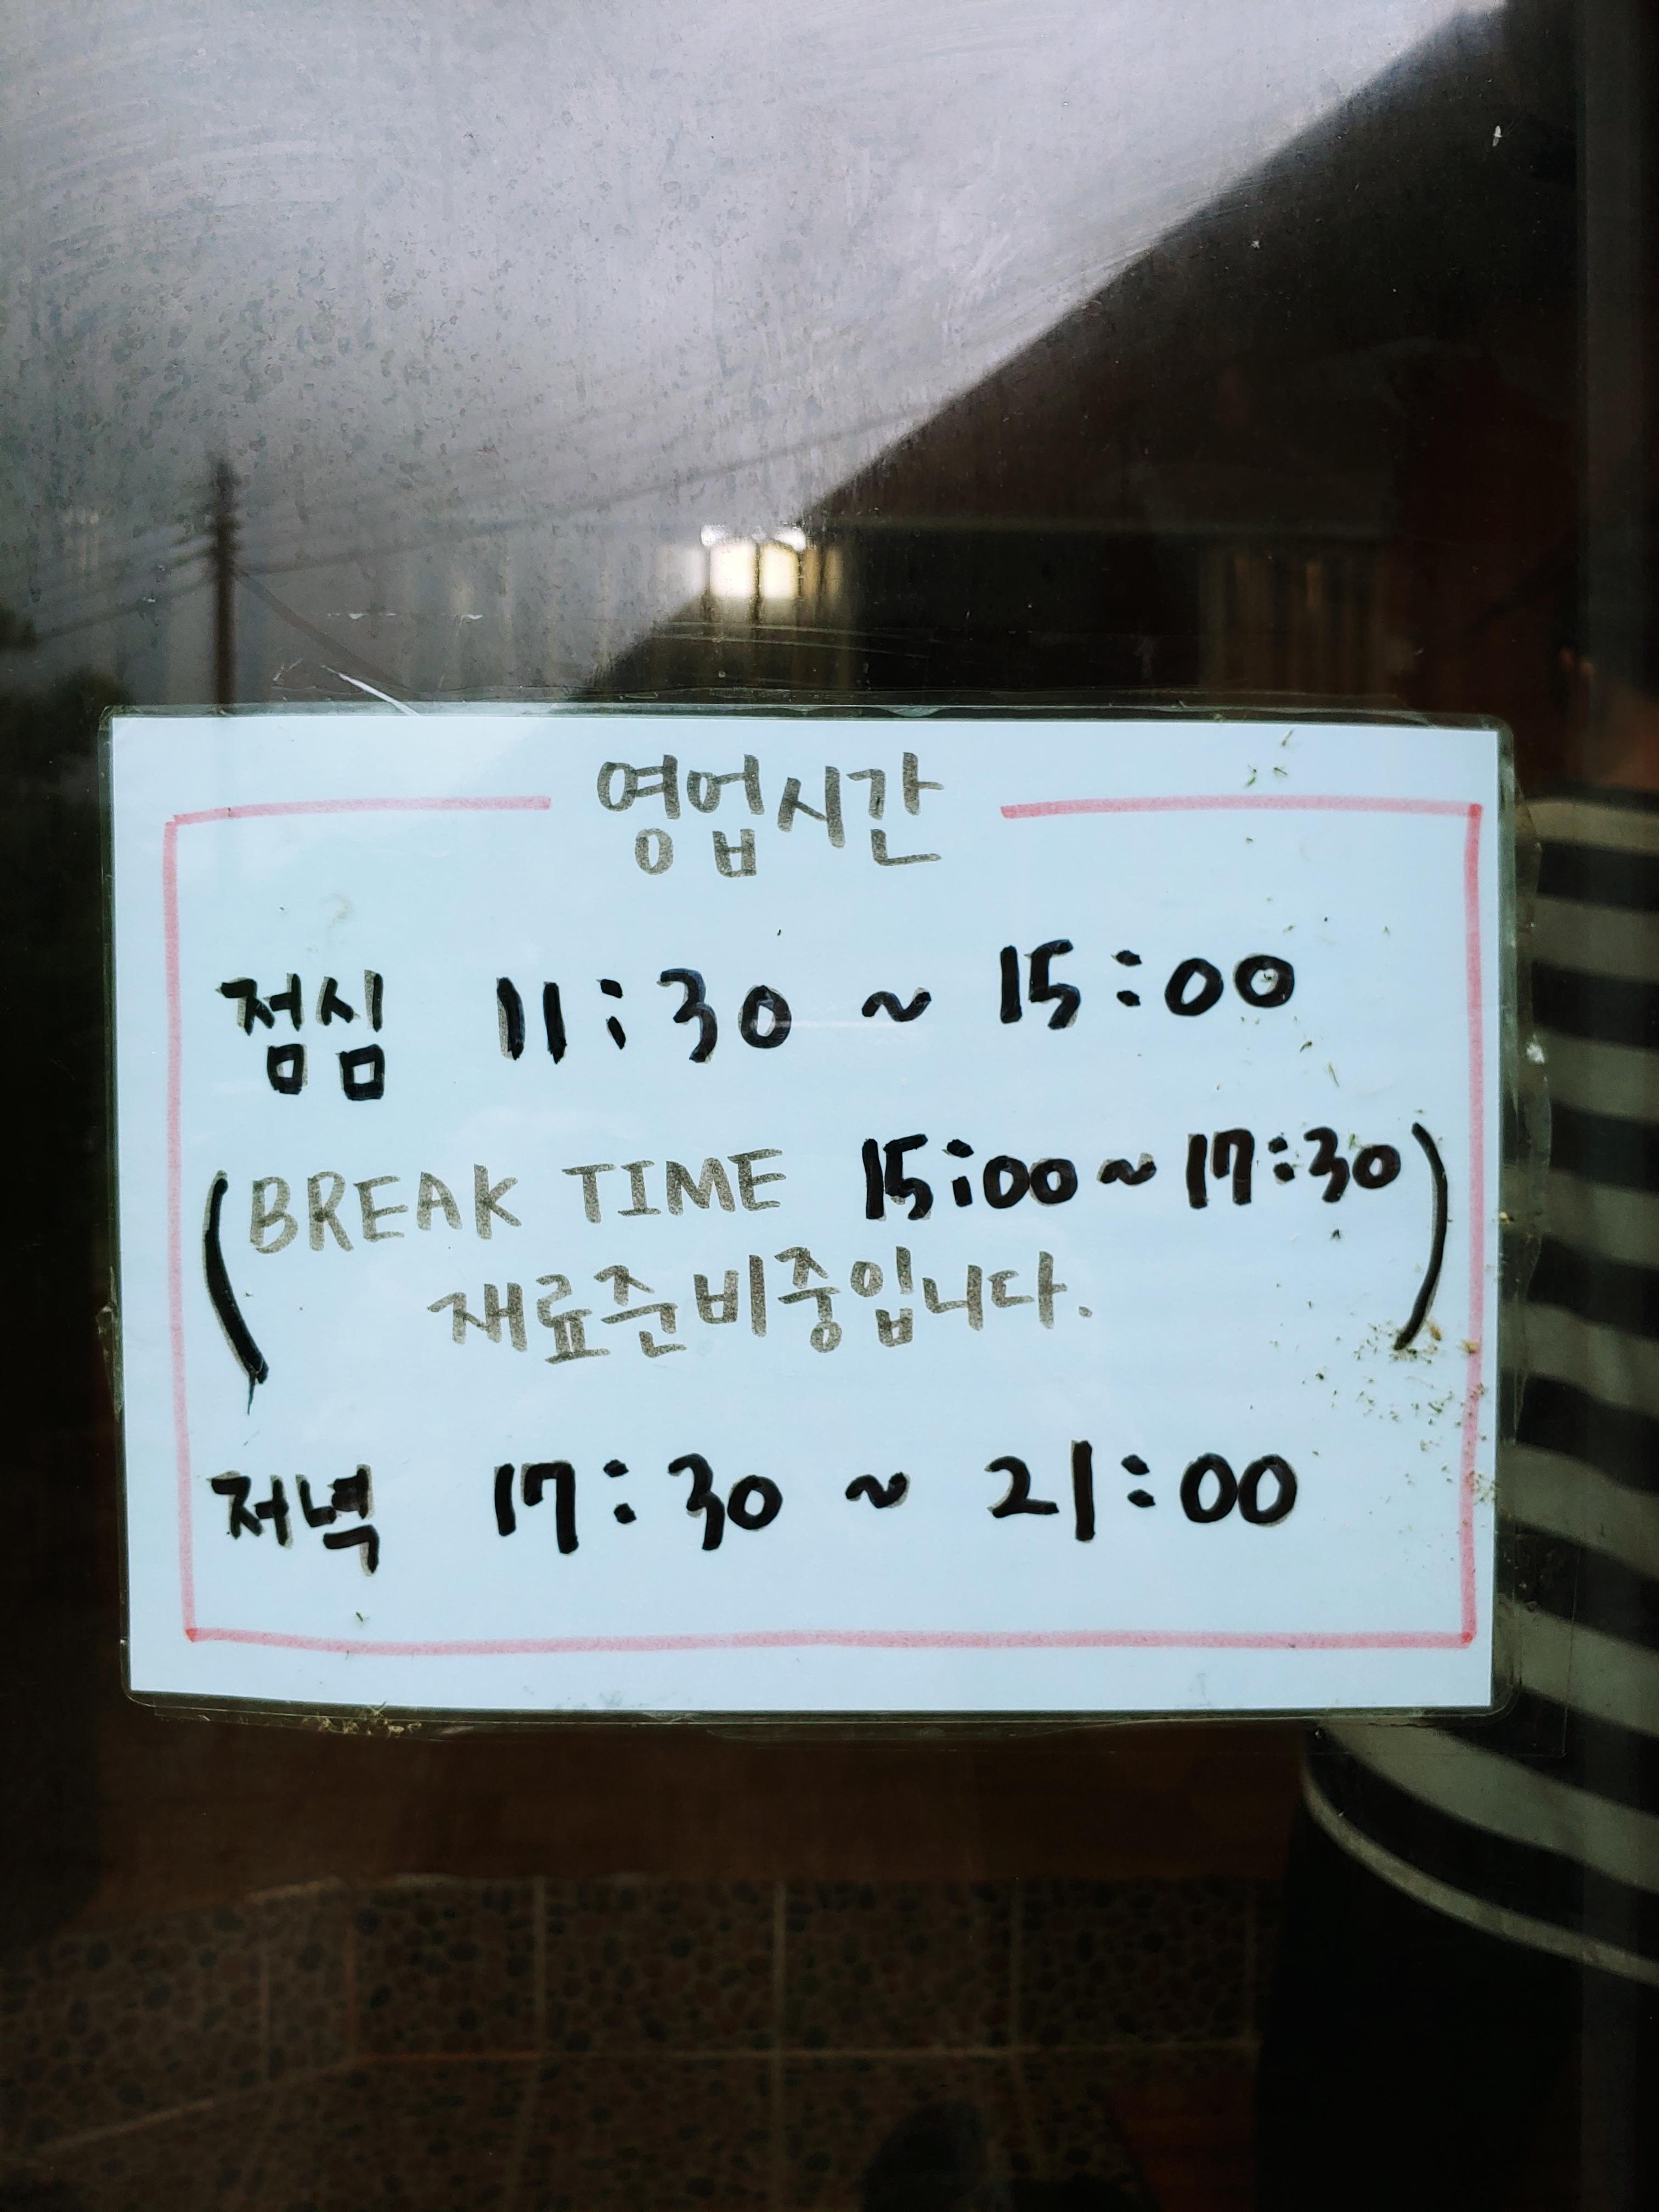 영업시간
점심 11:30 ~ 15:00
(BREAK TIME 15:00 ~ 17:30)
재료준비중입니다.
저녁 17:30 ~ 21:00